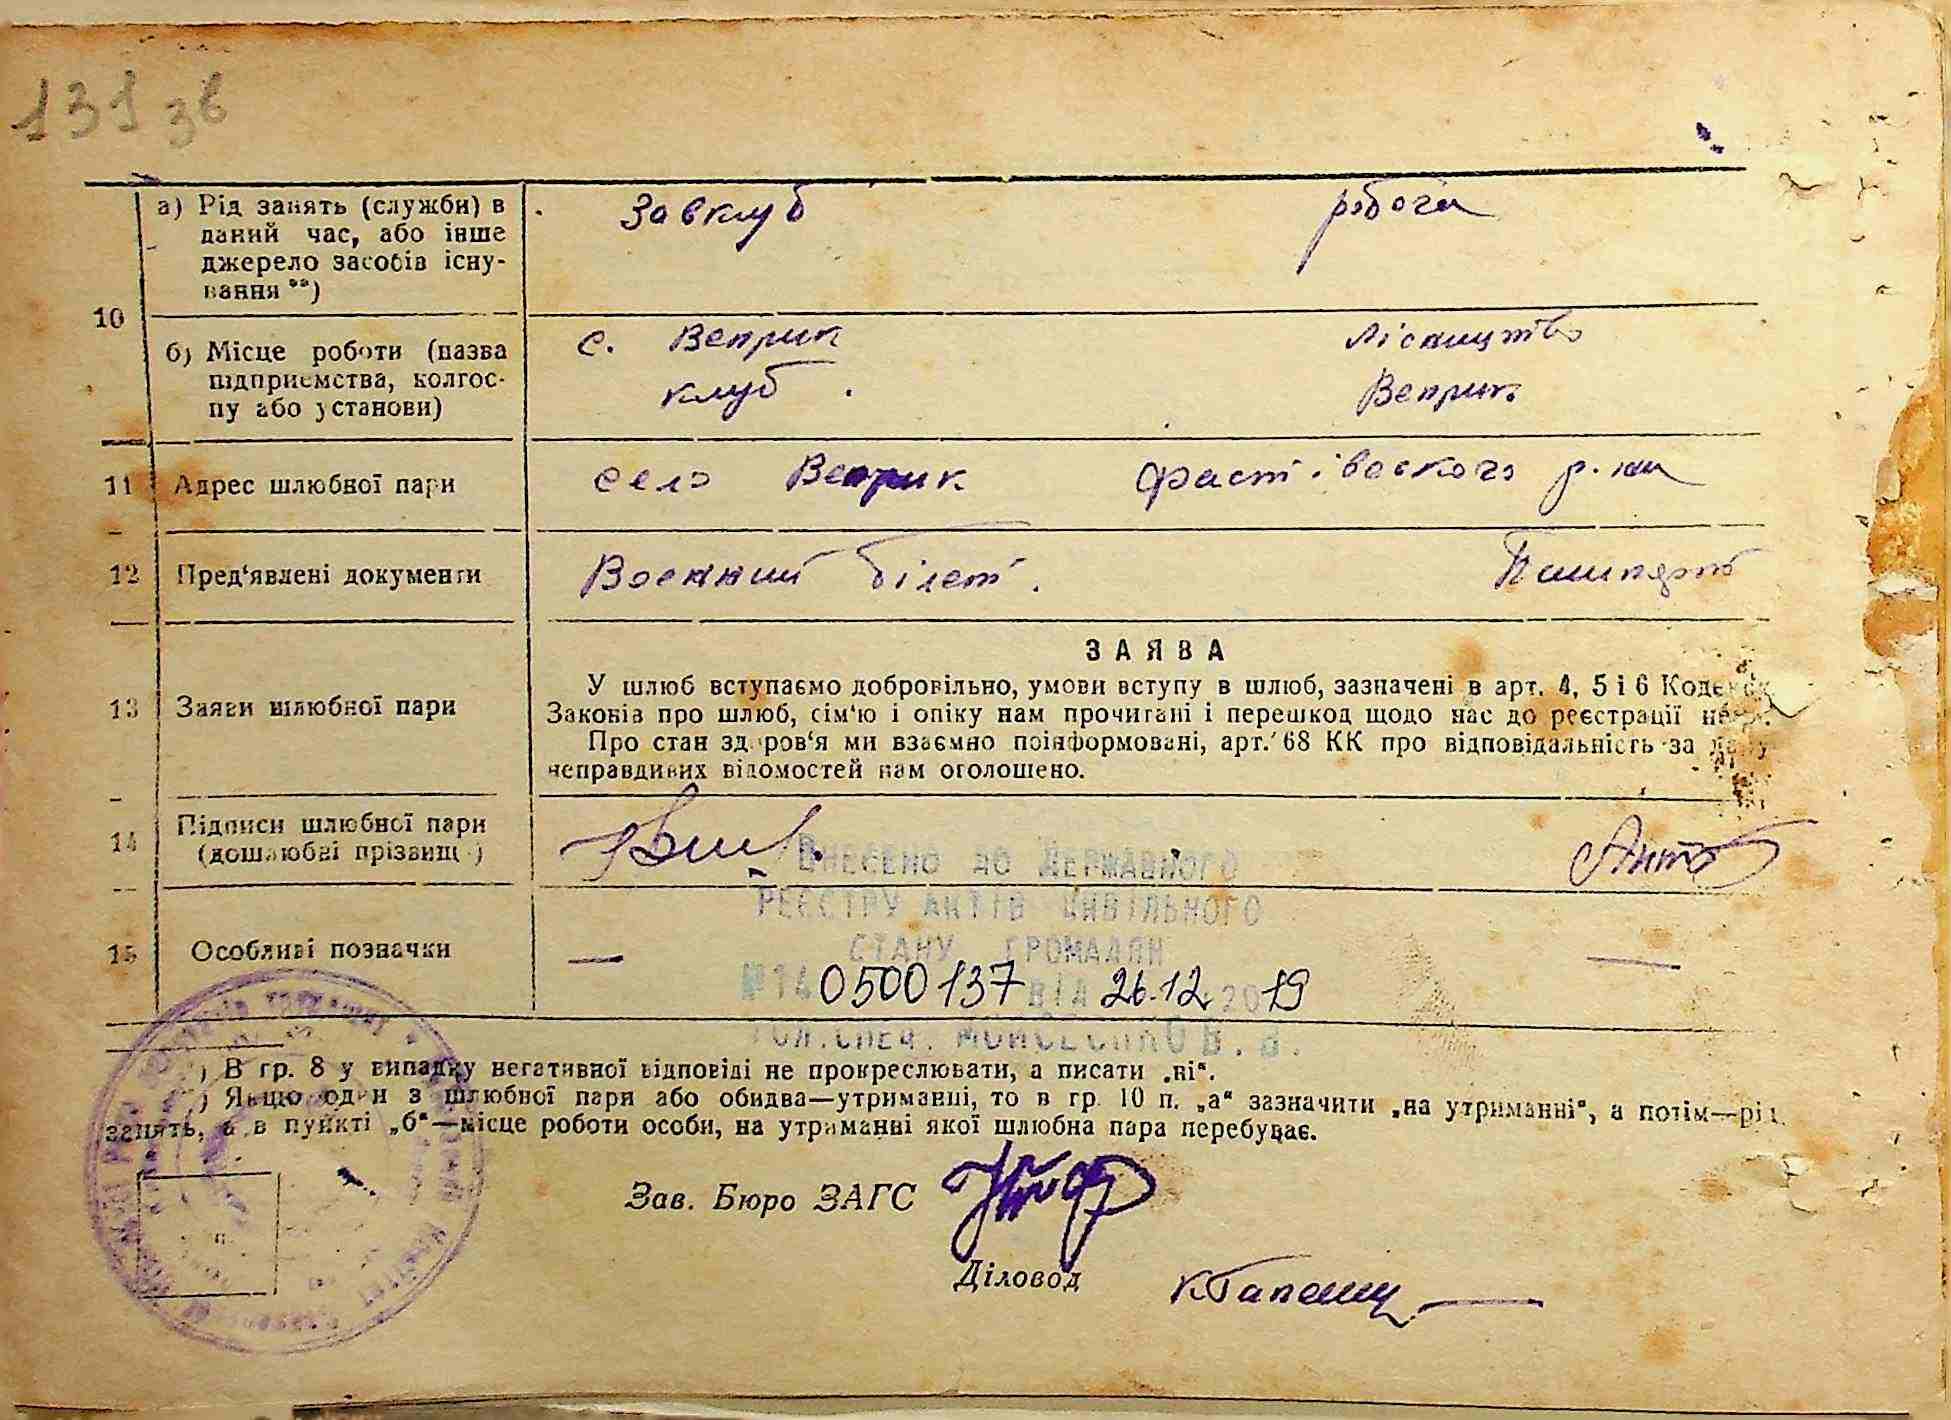 131 зв
а) Рід занять (служби) в
даний час, або інше
джерело засобів існу-
вання **)
Завклуб
робоча
10
б) Місце роботи (назва
підприємства, колгос-
пу або установи)
с. Веприк
клуб.
Лісництво
Веприк
11 Адрес шлюбної пари
село Веприк Фастівського р-на
12 Пред‘явлені документи
Воєнний білет.
Пашпорт
13 Заяви шлюбної пари
ЗАЯВА
У шлюб вступаємо добровільно, умови вступу в шлюб, зазначені в арт. 4, 5 і 6 Кодексу
Законів про шлюб, сім‘ю і опіку нам прочитані і перешкод щодо нас до реєстрації нема.
Про стан здоров‘я ми взаємно поінформовані, арт. 68 КК про відповідальність за дачу
неправдивих відомостей нам оголошено.
14 Підписи шлюбної пари
(дошлюбні прізвища)
ВНЕСЕНО ДО ДЕРЖАВНОГО
РЕЄСТРУ АКТІВ ЦИВІЛЬНОГО
СТАНУ ГРОМАДЯН
№ 140500137 ВІД 26.12.2019
ГОЛ.СПЕЦ. МОЙСЕЄНКО В. В.
15 Особливі позначки
—
—
*) В гр. 8 у випадку негативної відповіді не прокреслювати, а писати „ні“.
**) Якщо один з шлюбної пари або обидва—утриманці, то в гр. 10 п. „а“ зазначити „на утриманні“, а потім—рід
занять, а в пункті „б“—місце роботи особи, на утриманні якої шлюбна пара перебуває.
Зав. Бюро ЗАГС
Діловод